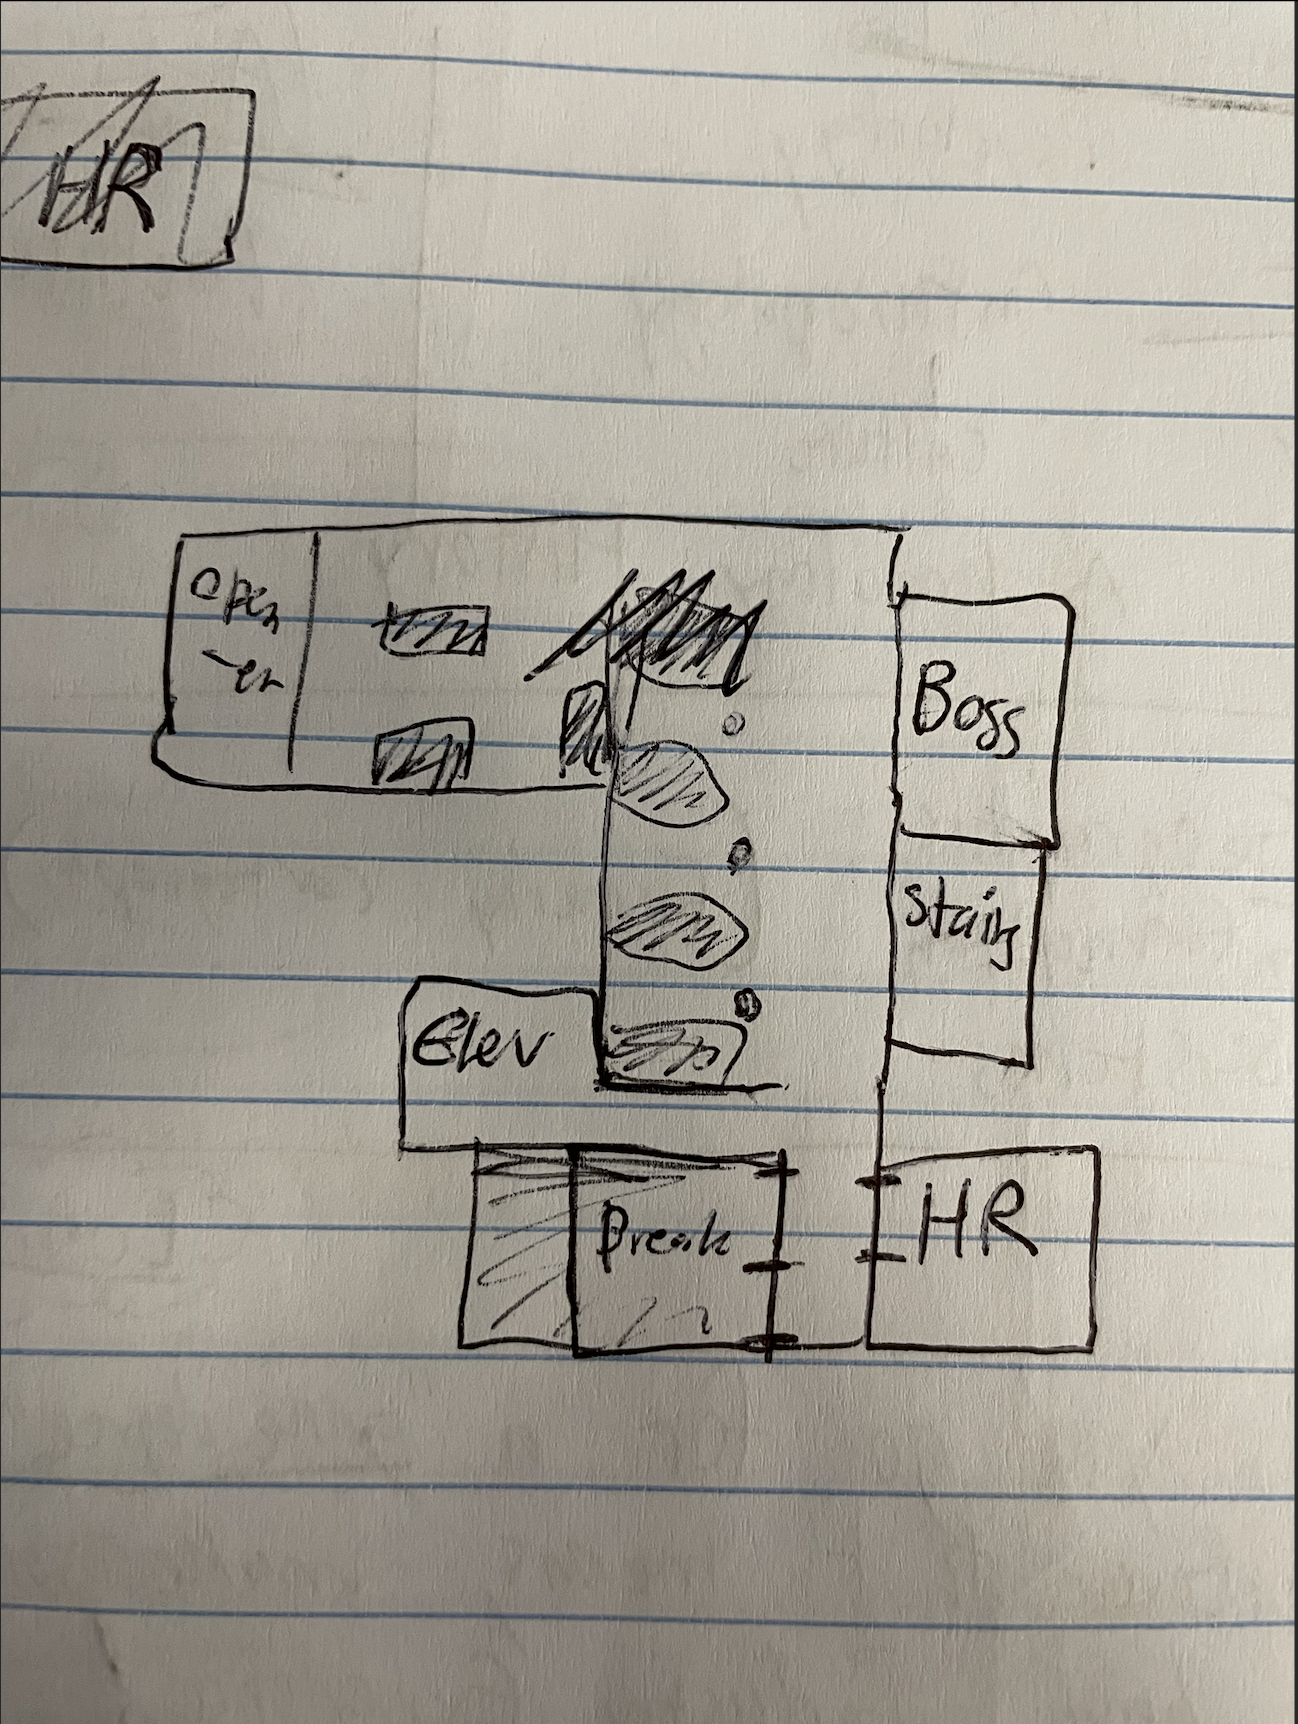 HR
Open
-er
Boss
Stairs
Elev
Break
HR